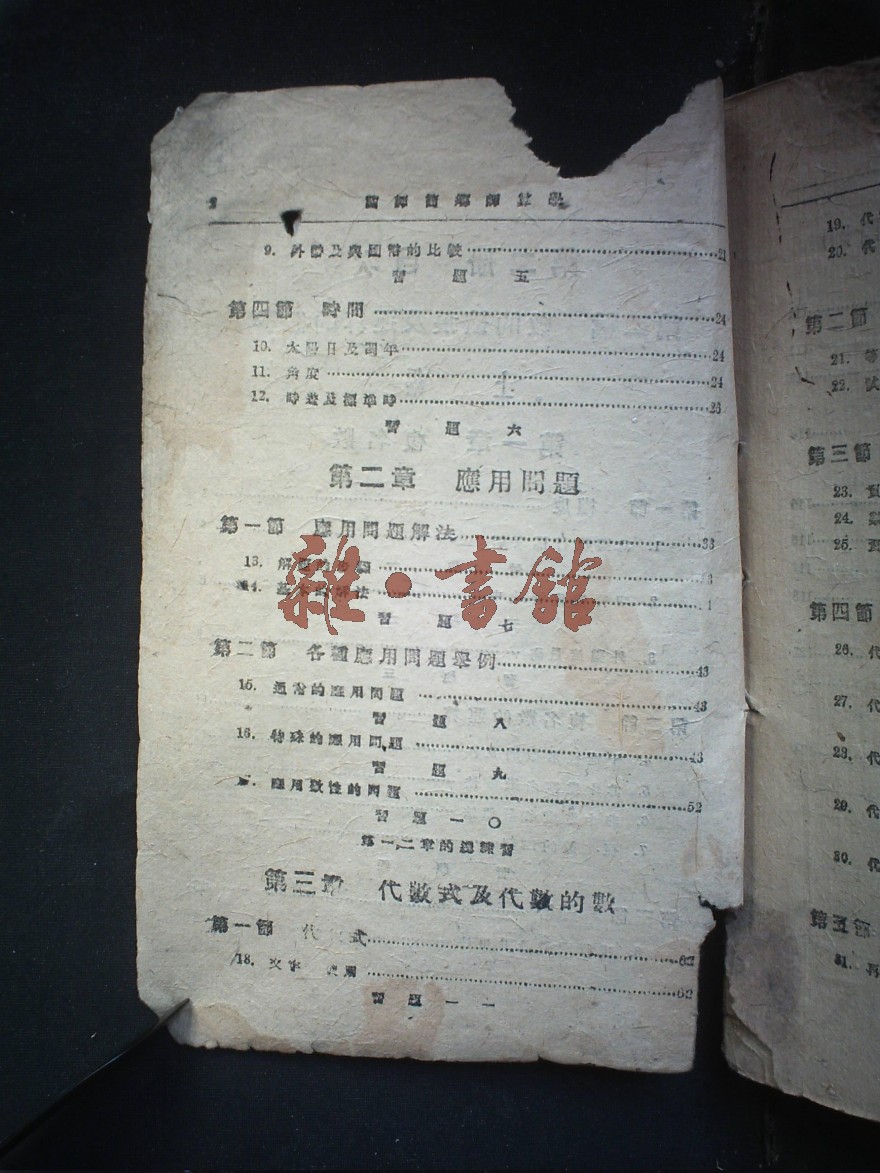 簡師簡鄉師數學
9. 外幣及與國幣的比較……21
習 題 五
第四節 時間……24
10. 太陽日及週年……24
11. 角度……24
12. 時差及標準時……26
習 題 六
第二章 應用問題
第一節 應用問題解法……33
13. 解題的步驟
14. 基本的解法
習 題 七
雜·書館
第二節 各種應用問題舉例……43
15. 通常的應用問題……43
習 題 八
16. 特殊的應用問題……43
習 題 九
應用數性的問題……52
習 題 一〇
第一二章的總練習
第三章 代數式及代數的數
第一節 代 式……62
18. 文字……62
習 題 一一
19. 代
20. 代
第二節
21. 等
22. 試
第三節
23.
24.
25.
第四節
26. 代
27. 代
28. 代
29. 代
30. 代
第五節
31. 再